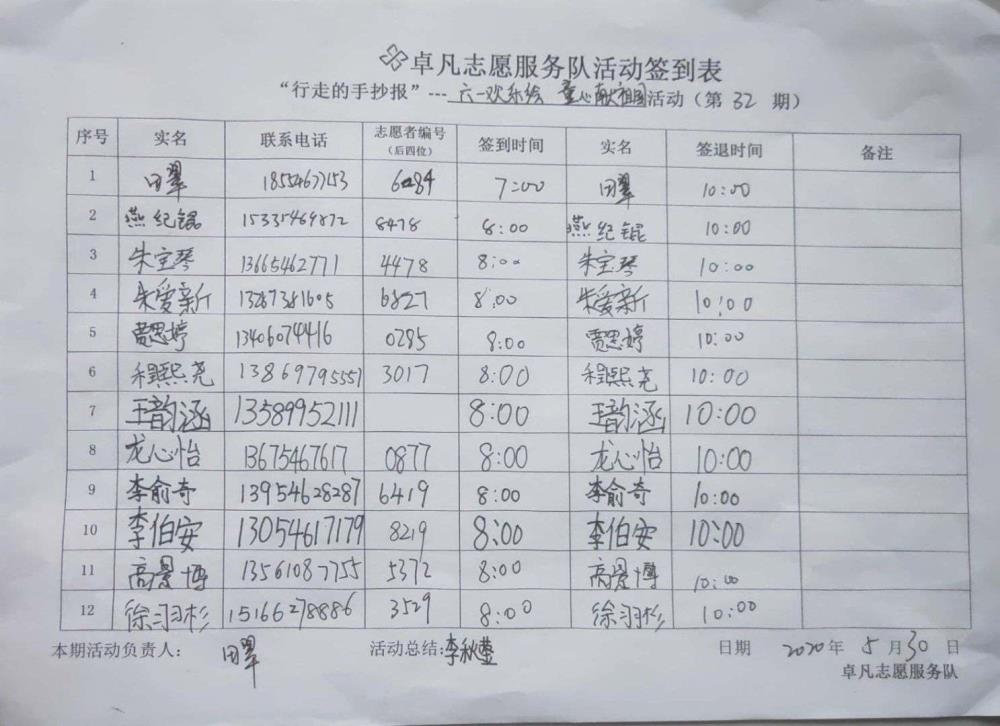 卓凡志愿服务队活动签到表
“行走的手抄报”---六一欢乐绘 童心献祖国活动（第 32 期）
序号 实名 联系电话 志愿者编号（后四位） 签到时间 实名 签退时间 备注
1 田翠 18554677153 6284 7:00 田翠 10:00
2 燕纪锟 15335469872 8478 8:00 燕纪锟 10:00
3 朱宝琴 13665462771 4478 8:00 朱宝琴 10:00
4 朱爱新 13287381605 6827 8:00 朱爱新 10:00
5 贾思婷 13406074416 0285 8:00 贾思婷 10:00
6 程熙尧 13869795551 3017 8:00 程熙尧 10:00
7 王韵涵 13589952111 8:00 王韵涵 10:00
8 龙心怡 13675467617 0877 8:00 龙心怡 10:00
9 李俞奇 13954628287 6419 8:00 李俞奇 10:00
10 李伯安 13054617179 8219 8:00 李伯安 10:00
11 高景博 13561087755 5372 8:00 高景博 10:00
12 徐羽杉 15166278886 3529 8:00 徐羽杉 10:00
本期活动负责人： 田翠 活动总结:李秋莹 日期 2020 年 5 月 30 日
卓凡志愿服务队